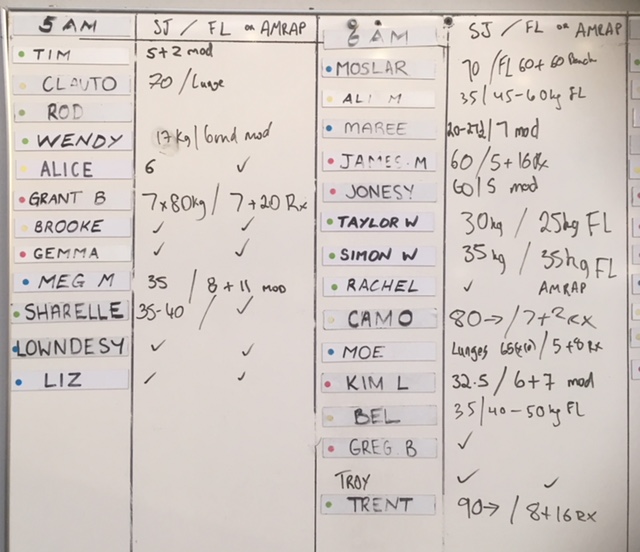 5 AM SJ / FL or AMRAP
TIM 5+2 mod
CLAUTO 70 / Lunge
ROD
WENDY 17kg / 6rnd mod
ALICE 6 ✓
GRANT B 7x80kg / 7+20 Rx
BROOKE ✓ ✓
GEMMA ✓ ✓
MEG M 35 / 8+11 mod
SHARELLE 35-40 / ✓
LOWNDESY ✓ ✓
LIZ ✓ ✓
AM SJ / FL or AMRAP
MOSLAR 70 / FL 60+60
ALI M 35 / 45-60kg FL
MAREE / 7 mod
JAMES.M 60 / 5+16 Rx
JONESY 60 / 5 mod
TAYLOR W 30kg / 25kg FL
SIMON W 35kg / 35kg FL
RACHEL ✓ AMRAP
CAMO 80→ / 7+2 RX
MOE Lunges / 5+8 Rx
KIM L 32.5 / 6+7 mod
BEL 35 / 40-50kg FL
GREG.B ✓
TROY ✓ ✓
TRENT 90→ / 8+16 RX